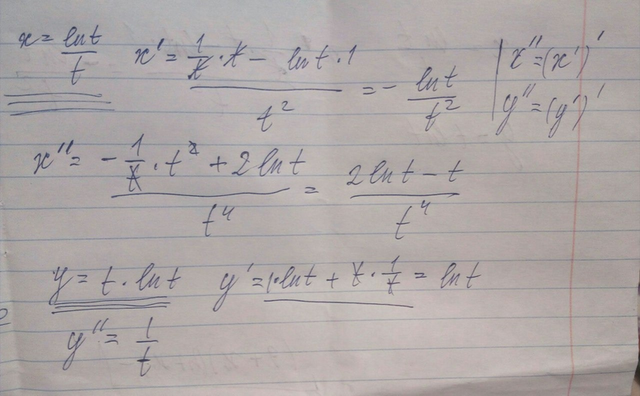 x = ln t / t x' = (1/t · t − ln t · 1) / t² = − ln t / t² | x'' = (x')'
y'' = (y')'
x'' = (− 1/t · t² + 2 ln t) / t⁴ = (2 ln t − t) / t⁴
y = t · ln t y' = 1 · ln t + t · 1/t = ln t
y'' = 1/t